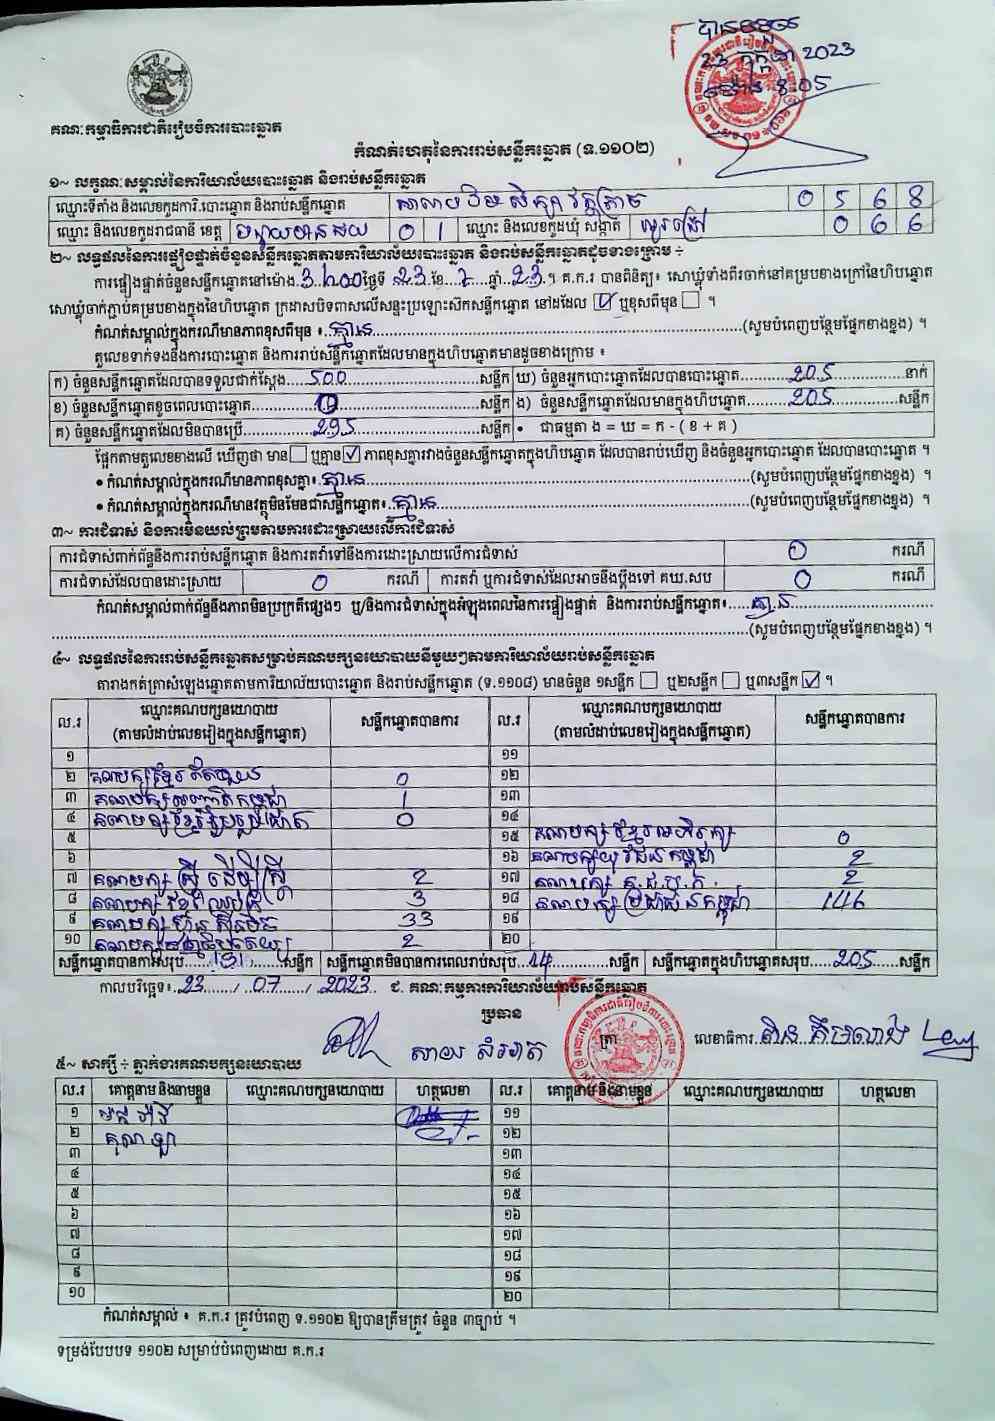 បានទទួល
23 កក្កដា 2023
ម៉ោង 8:05
គណៈកម្មាធិការជាតិរៀបចំការបោះឆ្នោត
កំណត់ហេតុនៃការរាប់សន្លឹកឆ្នោត (ទ.១១០២)
១~ លក្ខណៈសម្គាល់នៃការិយាល័យបោះឆ្នោត និងរាប់សន្លឹកឆ្នោត
ឈ្មោះទីតាំង និងលេខកូដការិ.បោះឆ្នោត និងរាប់សន្លឹកឆ្នោត 0 5 6 8
ឈ្មោះ និងលេខកូដរាជធានី ខេត្ត បន្ទាយមានជ័យ 0 1 ឈ្មោះ និងលេខកូដឃុំ សង្កាត់ 0 6 6
២~ លទ្ធផលនៃការផ្ទៀងផ្ទាត់ចំនួនសន្លឹកឆ្នោតតាមការិយាល័យបោះឆ្នោត និងរាប់សន្លឹកឆ្នោតដូចខាងក្រោម ÷
ការផ្ទៀងផ្ទាត់ចំនួនសន្លឹកឆ្នោតនៅម៉ោង 3h00 ថ្ងៃទី 23 ខែ 7 ឆ្នាំ 23 ។ គ.ក.រ បានពិនិត្យ៖ សោឃ្លុំទាំងពីរចាក់នៅគម្របខាងក្រៅនៃហិបឆ្នោត
សោឃ្លុំចាក់ភ្ជាប់គម្របខាងក្នុងនៃហិបឆ្នោត ក្រដាសបិទពាសលើសន្ទះប្រឡោះស៊កសន្លឹកឆ្នោត នៅដដែល ☑ ឬខុសពីមុន ☐ ។
កំណត់សម្គាល់ក្នុងករណីមានភាពខុសពីមុន ៖ គ្មាន (សូមបំពេញបន្ថែមផ្នែកខាងខ្នង) ។
តួលេខទាក់ទងនឹងការបោះឆ្នោត និងការរាប់សន្លឹកឆ្នោតដែលមានក្នុងហិបឆ្នោតមានដូចខាងក្រោម ៖
ក) ចំនួនសន្លឹកឆ្នោតដែលបានទទួលជាក់ស្តែង 500 សន្លឹក ឃ) ចំនួនអ្នកបោះឆ្នោតដែលបានបោះឆ្នោត 205 នាក់
ខ) ចំនួនសន្លឹកឆ្នោតខូចពេលបោះឆ្នោត 0 សន្លឹក ង) ចំនួនសន្លឹកឆ្នោតដែលមានក្នុងហិបឆ្នោត 205 សន្លឹក
គ) ចំនួនសន្លឹកឆ្នោតដែលមិនបានប្រើ 295 សន្លឹក • ជាធម្មតា ង = ឃ = ក - ( ខ + គ )
ផ្អែកតាមតួលេខខាងលើ ឃើញថា មាន ☐ ឬគ្មាន ☑ ភាពខុសគ្នារវាងចំនួនសន្លឹកឆ្នោតក្នុងហិបឆ្នោត ដែលបានរាប់ឃើញ និងចំនួនអ្នកបោះឆ្នោត ដែលបានបោះឆ្នោត ។
• កំណត់សម្គាល់ក្នុងករណីមានភាពខុសគ្នា៖ គ្មាន (សូមបំពេញបន្ថែមផ្នែកខាងខ្នង) ។
• កំណត់សម្គាល់ក្នុងករណីមានវត្ថុមិនមែនជាសន្លឹកឆ្នោត៖ គ្មាន (សូមបំពេញបន្ថែមផ្នែកខាងខ្នង) ។
៣~ ការជំទាស់ និងការមិនយល់ព្រមតាមការដោះស្រាយលើការជំទាស់
ការជំទាស់ពាក់ព័ន្ធនឹងការរាប់សន្លឹកឆ្នោត និងការតវ៉ាទៅនឹងការដោះស្រាយលើការជំទាស់ 0 ករណី
ការជំទាស់ដែលបានដោះស្រាយ 0 ករណី ការតវ៉ា ឬការជំទាស់ដែលអាចនឹងប្តឹងទៅ គឃ.សប 0 ករណី
កំណត់សម្គាល់ពាក់ព័ន្ធនឹងភាពមិនប្រក្រតីផ្សេងៗ ឬ/និងការជំទាស់ក្នុងអំឡុងពេលនៃការផ្ទៀងផ្ទាត់ និងការរាប់សន្លឹកឆ្នោត៖ គ្មាន
(សូមបំពេញបន្ថែមផ្នែកខាងខ្នង) ។
៤~ លទ្ធផលនៃការរាប់សន្លឹកឆ្នោតសម្រាប់គណបក្សនយោបាយនីមួយៗតាមការិយាល័យរាប់សន្លឹកឆ្នោត
តារាងកត់ត្រាសំឡេងឆ្នោតតាមការិយាល័យបោះឆ្នោត និងរាប់សន្លឹកឆ្នោត (ទ.១១០៨) មានចំនួន ១សន្លឹក ☐ ឬ២សន្លឹក ☐ ឬ៣សន្លឹក ☑ ។
ល.រ ឈ្មោះគណបក្សនយោបាយ (តាមលំដាប់លេខរៀងក្នុងសន្លឹកឆ្នោត) សន្លឹកឆ្នោតបានការ ល.រ ឈ្មោះគណបក្សនយោបាយ (តាមលំដាប់លេខរៀងក្នុងសន្លឹកឆ្នោត) សន្លឹកឆ្នោតបានការ
១ ១១
២ គណបក្ស 0 ១២
៣ គណបក្ស 1 ១៣
៤ គណបក្សខ្មែររួបរួមជាតិ 0 ១៤
៥ ១៥ គណបក្សខ្មែរអភិរក្ស 0
៦ ១៦ គណបក្សយុវជនកម្ពុជា 2
៧ គណបក្សស្ត្រីដើម្បីស្ត្រី 2 ១៧ គណបក្ស 2
៨ គណបក្សខ្មែរឈប់ក្រ 3 ១៨ គណបក្សប្រជាជនកម្ពុជា 146
៩ គណបក្សហ៊្វុនស៊ិនប៉ិច 33 ១៩
១០ គណបក្ស 2 ២០
សន្លឹកឆ្នោតបានការសរុប 191 សន្លឹក សន្លឹកឆ្នោតមិនបានការពេលរាប់សរុប 14 សន្លឹក សន្លឹកឆ្នោតក្នុងហិបឆ្នោតសរុប 205 សន្លឹក
កាលបរិច្ឆេទ៖ 23 / 07 / 2023 ជ. គណៈកម្មការការិយាល័យរាប់សន្លឹកឆ្នោត
ប្រធាន
ត្រា លេខាធិការ
៥~ សាក្សី ÷ ភ្នាក់ងារគណបក្សនយោបាយ
ល.រ គោត្តនាម និងនាមខ្លួន ឈ្មោះគណបក្សនយោបាយ ហត្ថលេខា ល.រ គោត្តនាម និងនាមខ្លួន ឈ្មោះគណបក្សនយោបាយ ហត្ថលេខា
១ ១១
២ ១២
៣ ១៣
៤ ១៤
៥ ១៥
៦ ១៦
៧ ១៧
៨ ១៨
៩ ១៩
១០ ២០
កំណត់សម្គាល់ ៖ គ.ក.រ ត្រូវបំពេញ ទ.១១០២ ឱ្យបានត្រឹមត្រូវ ចំនួន ៣ច្បាប់ ។
ទម្រង់បែបបទ ១១០២ សម្រាប់បំពេញដោយ គ.ក.រ